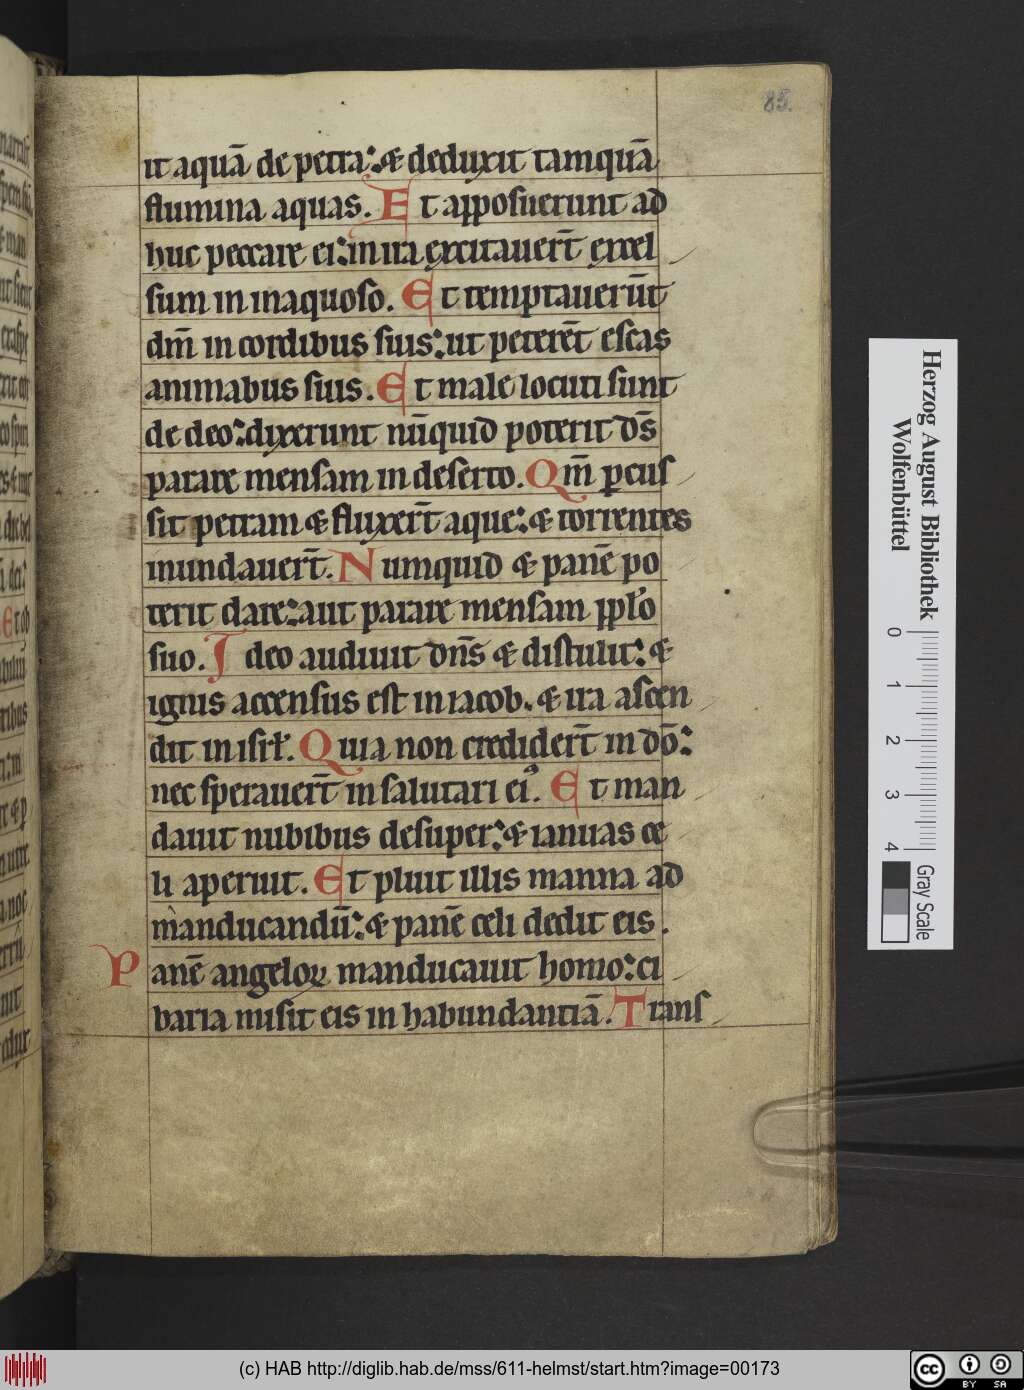 85.
it aquā de petra: & deduxit tamquā
flumina aquas. Et apposuerunt ad
huc peccare ei: in ira excitauer̄t excel
sum in inaquoso. Et temptauerūt
dm̄ in cordibus suis: ut peterēt escas
animabus suis. Et male locuti sunt
de deo: dixerunt nūquid poterit ds̄
parare mensam in deserto. Qm̄ ꝑcus
sit petram & fluxer̄t aque: & torrentes
inundauer̄t. Numquid & panē po
terit dare: aut parare mensam pplo
suo. Ideo audiuit dn̄s & distulit: & 
ignis accensus est in iacob. & ira ascen
dit in isrł. Quia non crediderīt in dō:
nec sperauer̄t in salutari eiꝰ. Et man
dauit nubibus desuper: & ianuas ce
li aperuit. Et pluit illis manna ad
manducandū: & panē celi dedit eis.
Panē angeloꝝ manducauit homo: ci
baria misit eis in habundantiā. Trans
Herzog August Bibliothek
Wolfenbüttel
0 1 2 3 4
Gray Scale
(c) HAB http://diglib.hab.de/mss/611-helmst/start.htm?image=00173
cc BY SA